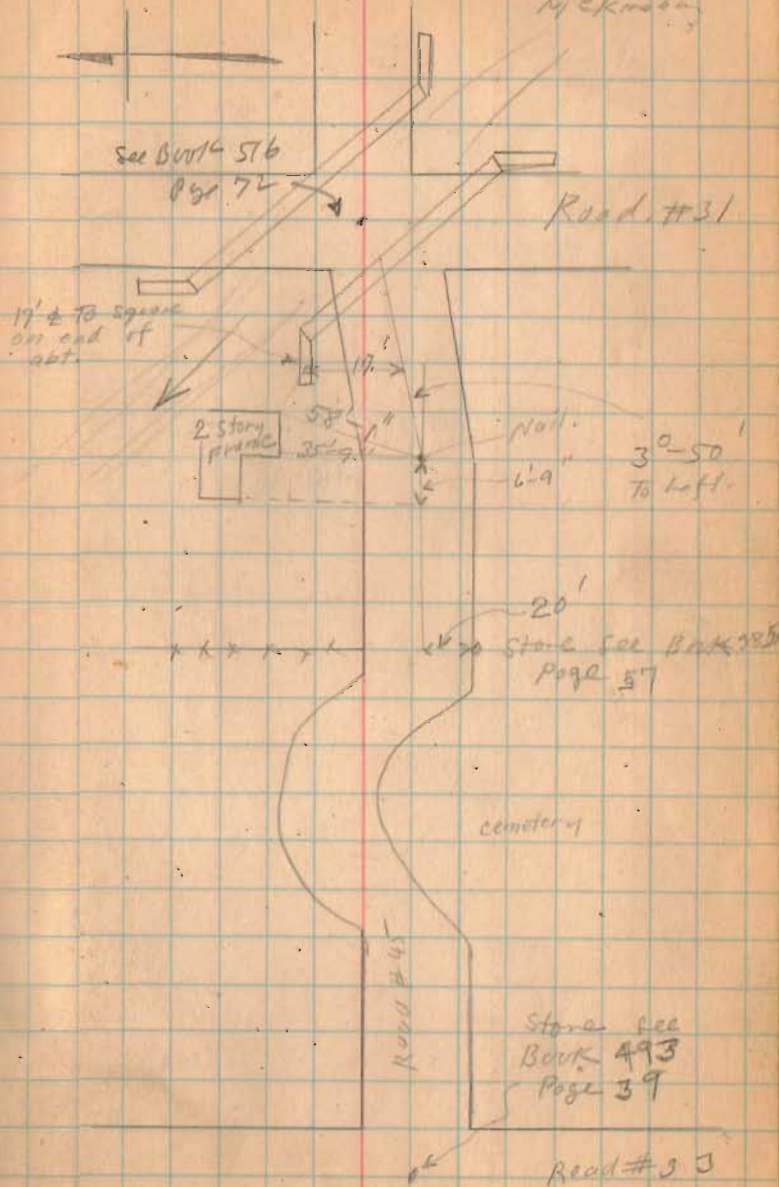 See Book 516
Page 72
Road. #31
19' ⅊ To square
on end of
abt.
19.'
58'-1"
2 Story
frame
35'-9"
Nail.
6'-9"
3°-50'
To Left.
20'
Stone See Book 385
Page 57
cemetery
Road #45
Stone See
Book 493
Page 39
Road #33